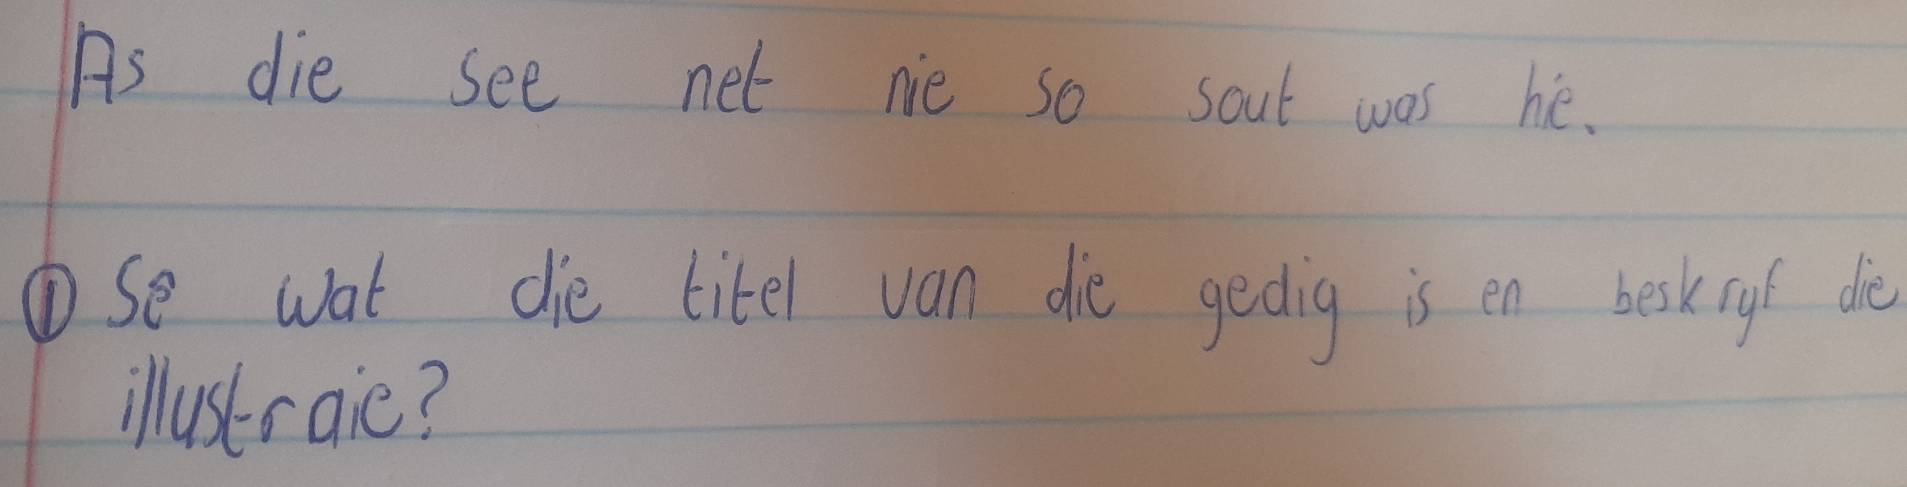 As die see net nie so sout was hie.
① Se wat die titel van die gedig is en beskryf die
illustraie?